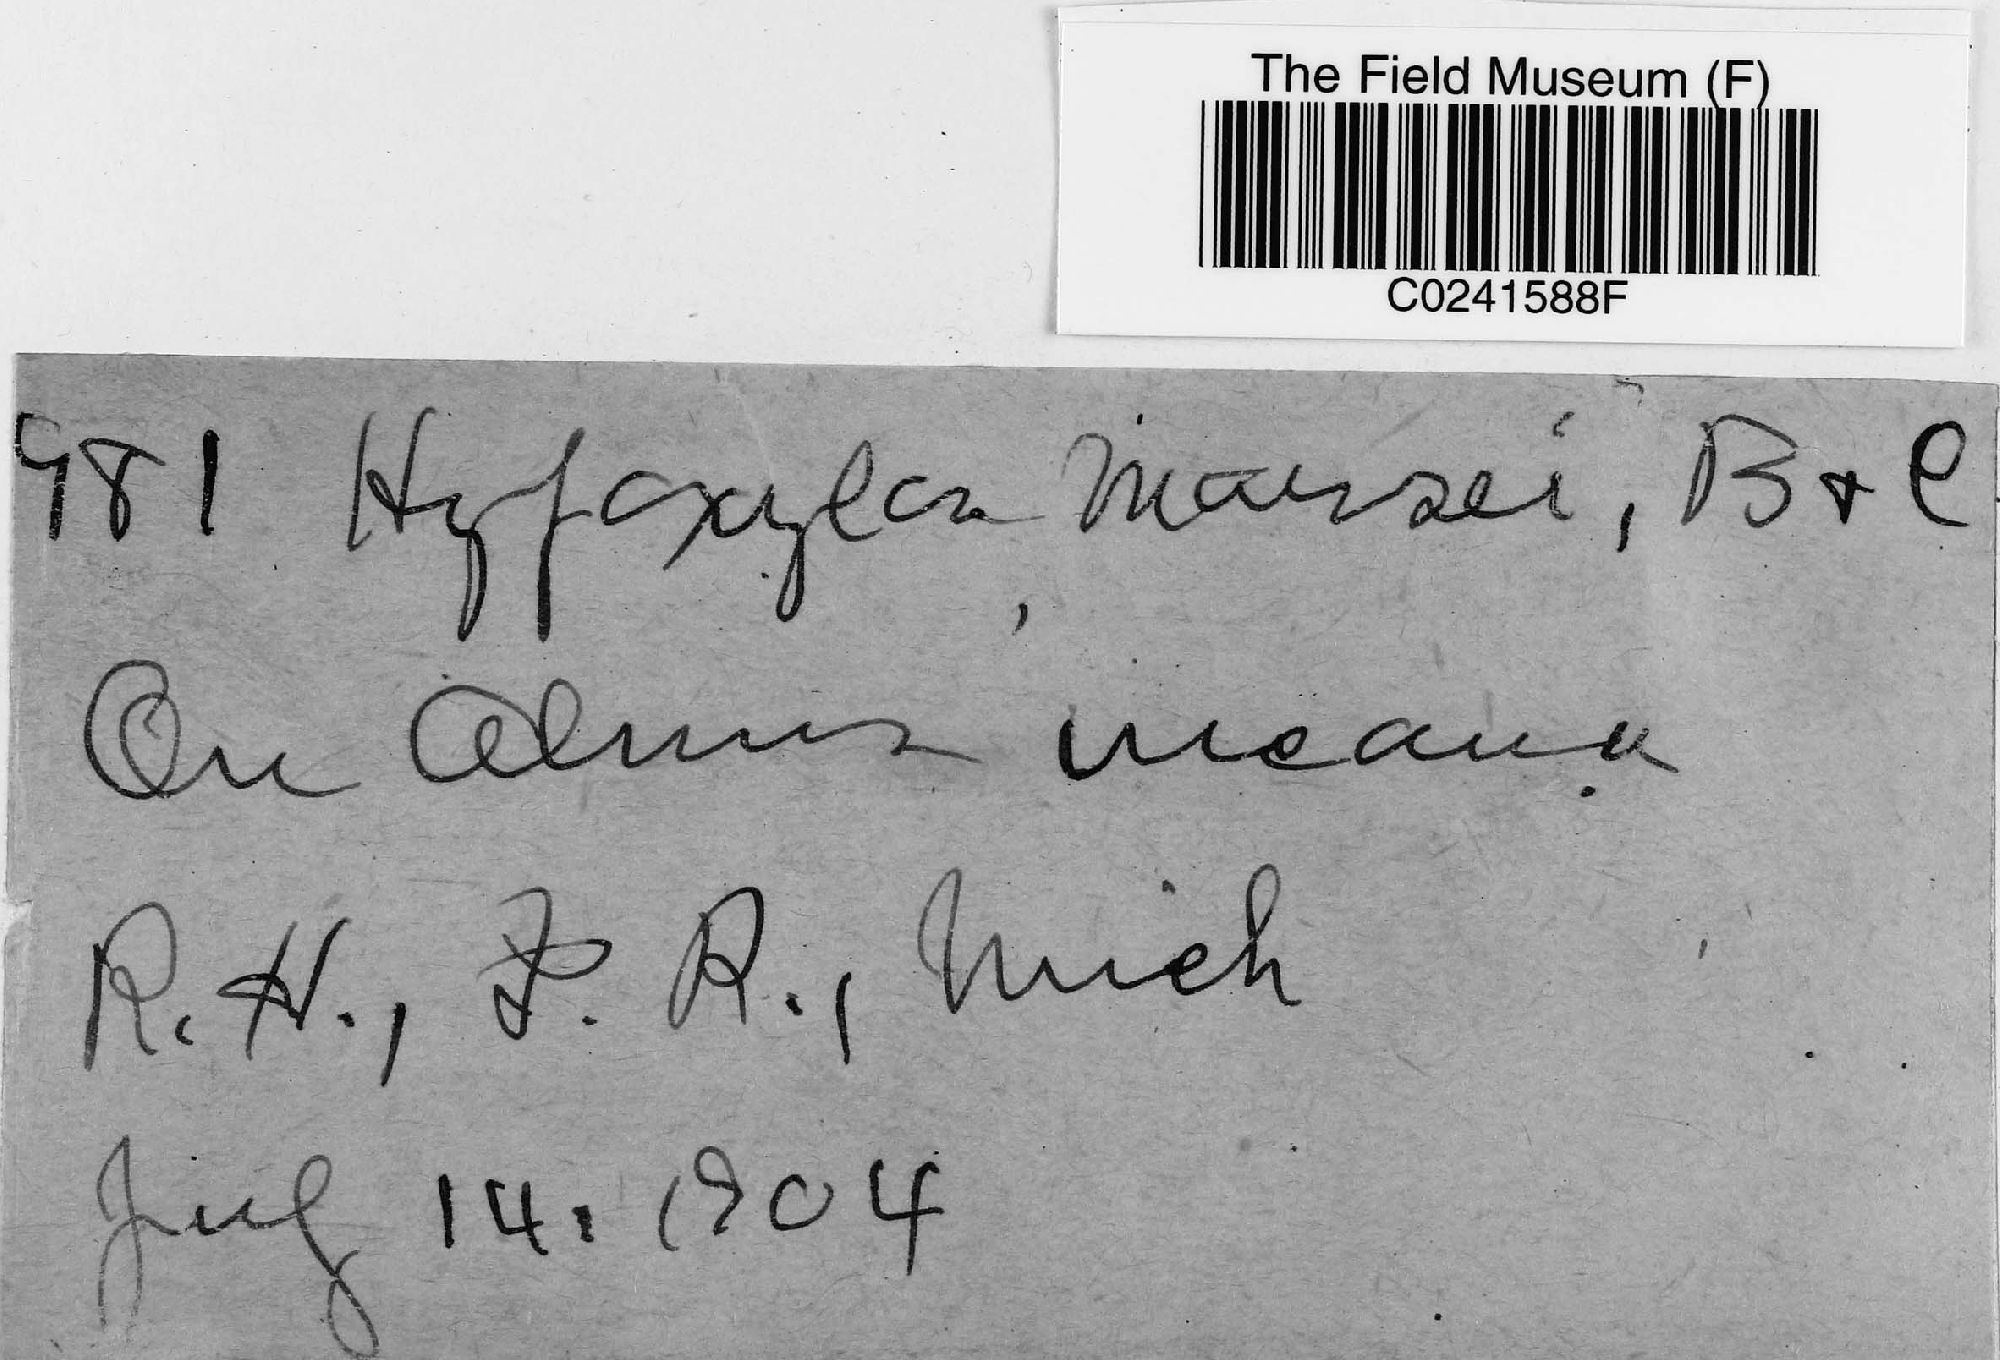 The Field Museum (F)
C0241588F
981 Hypoxylon Morsei, B & C
On Alnus incana
R. H., F. R., Mich
July 14. 1904